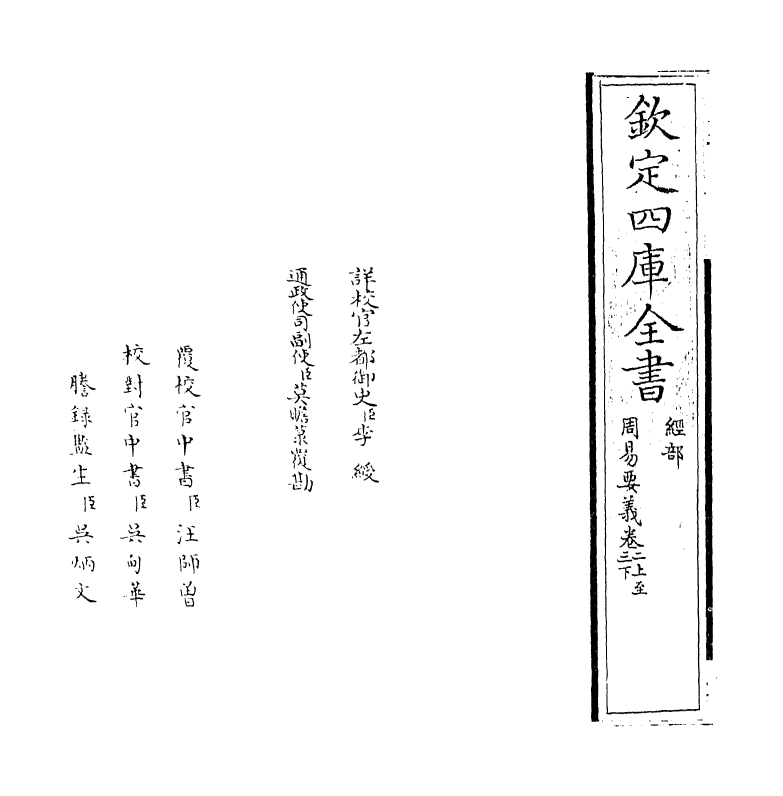 欽定四庫全書
經部
周易要義卷二上至三下
詳校官左都御史臣李綬
通政使司副使臣莫瞻菉覆勘
覆校官中書臣汪師曾
校對官中書臣吳甸華
謄錄監生臣吳炳文